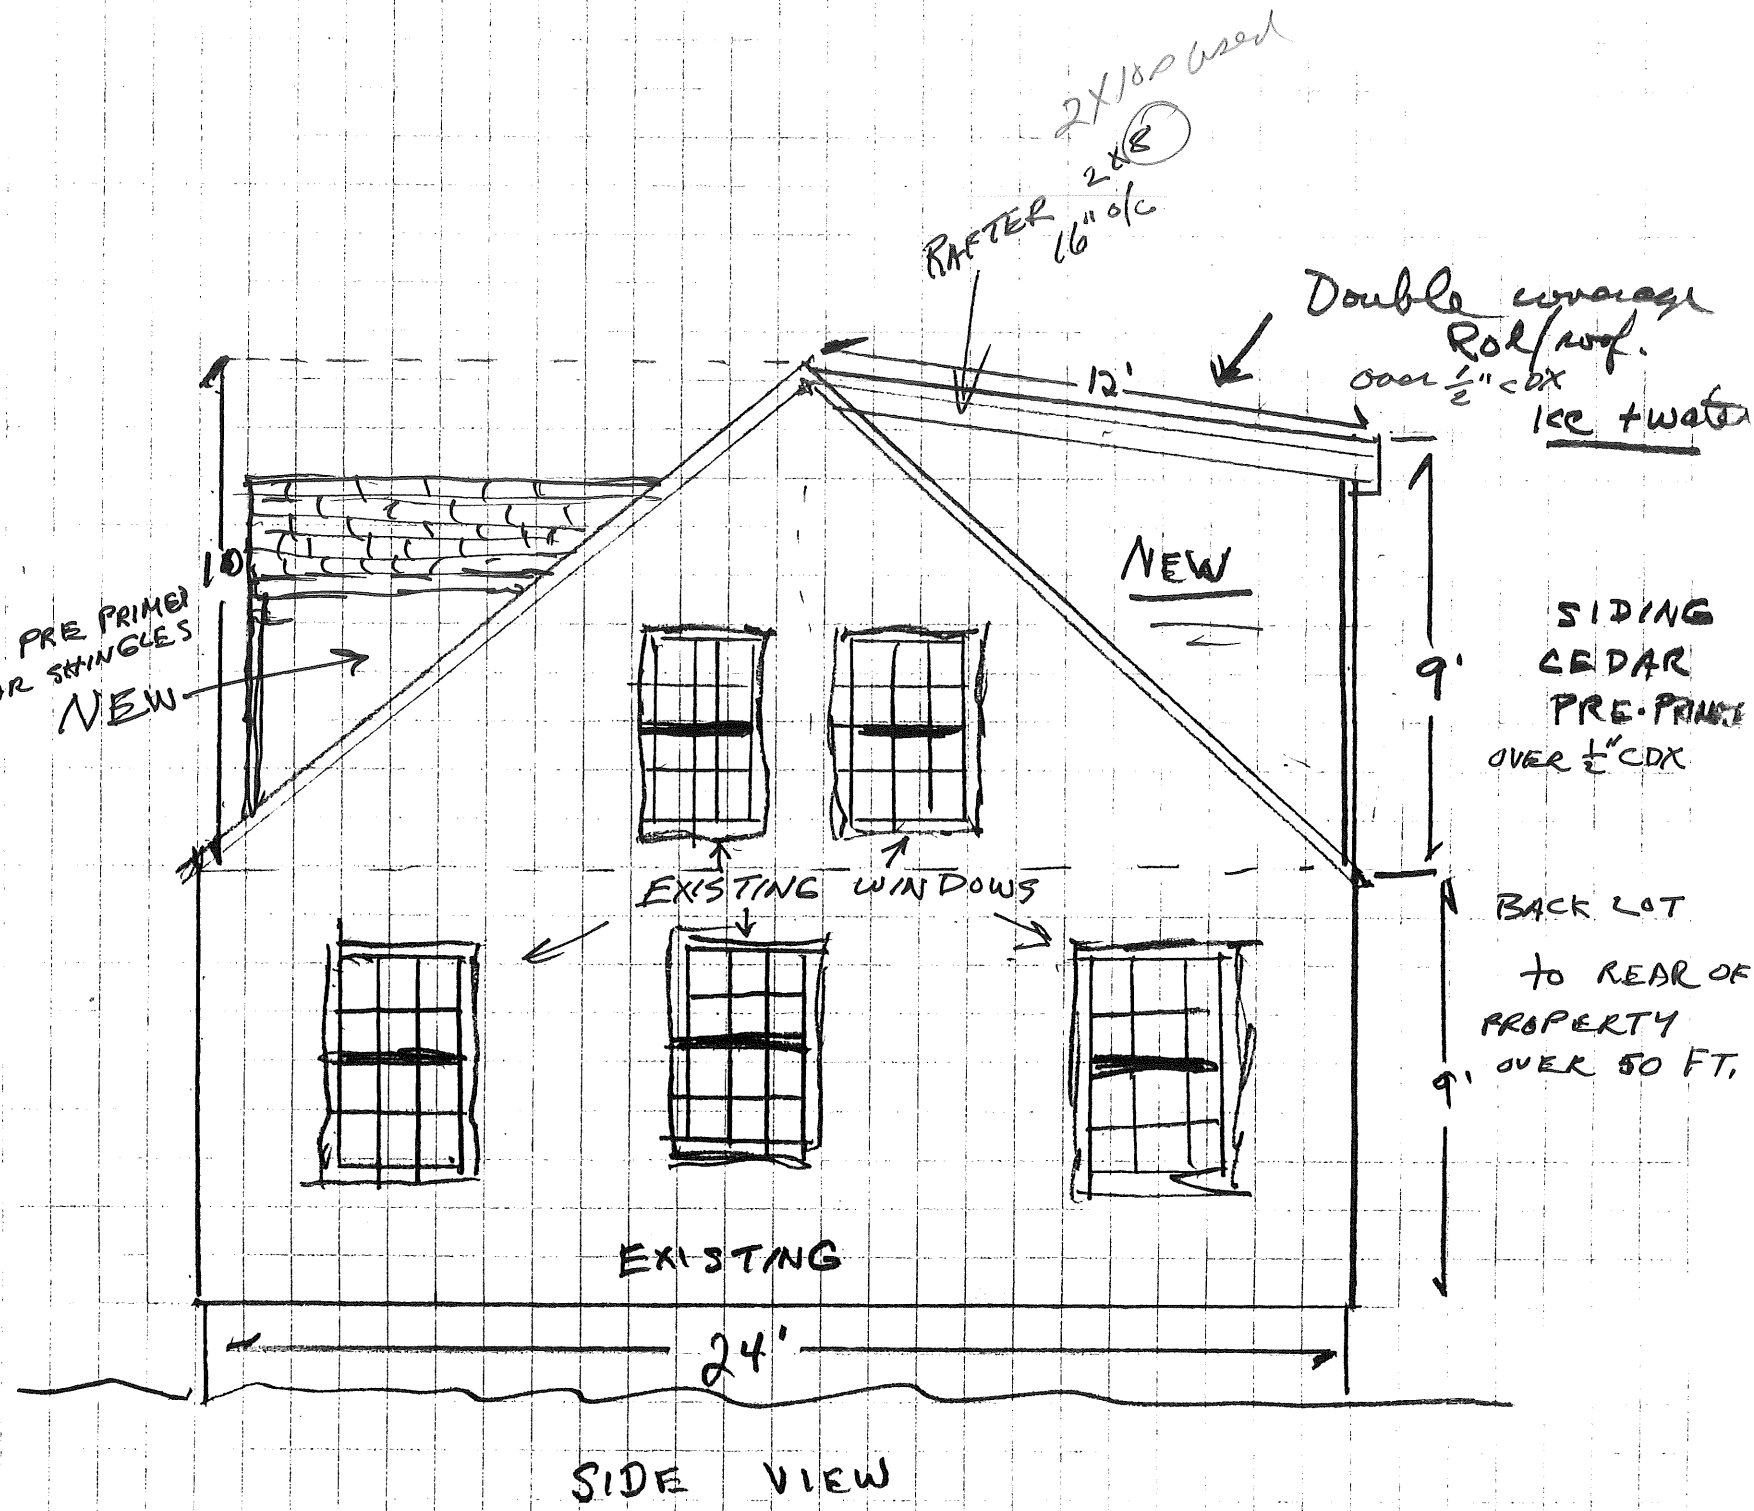 2X10s used
2X8
RAFTER 16" o/c
Double coverage
Roll roof.
over 1/2" CDX
Ice + water
12'
10
NEW
PRE PRIMED
SHINGLES
NEW
9'
SIDING
CEDAR
PRE-PRIMED
OVER 1/2" CDX
EXISTING WINDOWS
BACK LOT
to REAR OF
PROPERTY
OVER 50 FT.
9'
EXISTING
24'
SIDE VIEW